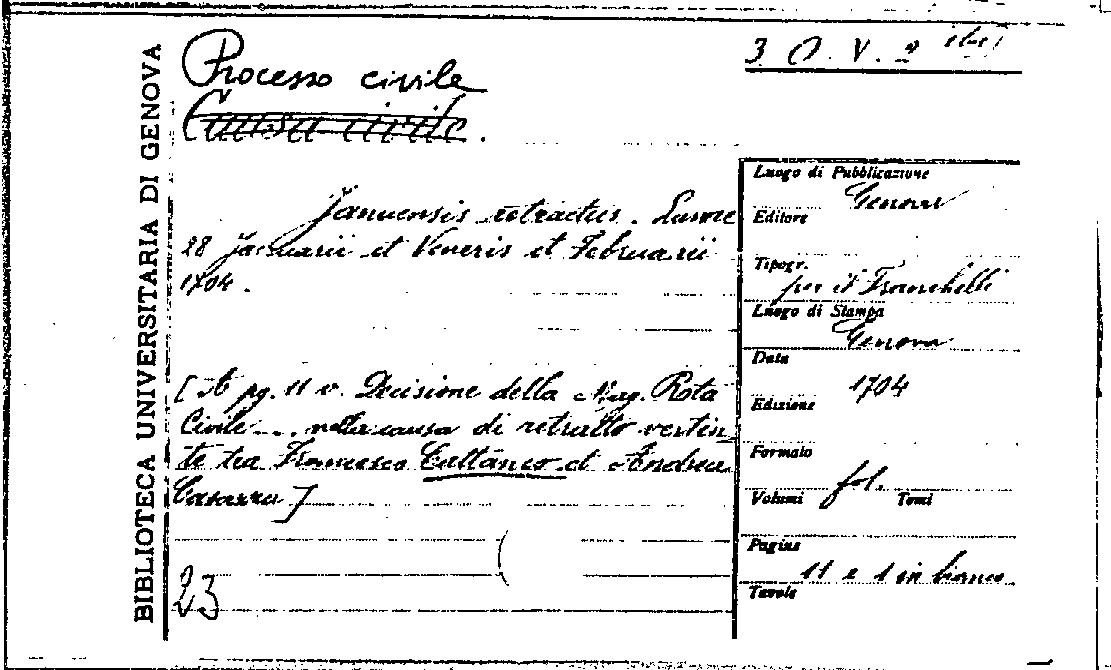 BIBLIOTECA UNIVERSITARIA DI GENOVA
3 O. V. 2
Processo civile
Causa civile.
Januensis retractus. Lunae
28 Januarii et Veneris et Februarii
1704.
[A pg. 11 v. Decisione della Mag. Rota
Civile... nella causa di retratto verten
te tra Francesco Cattaneo et Andrea
Casarza]
23
Luogo di Pubblicazione
Genova
Editore
Tipogr.
per il Franchelli
Luogo di Stampa
Genova
Data
1704
Edizione
Formato
fol.
Volumi Tomi
Pagine
11 e 1 in bianco
Tavole